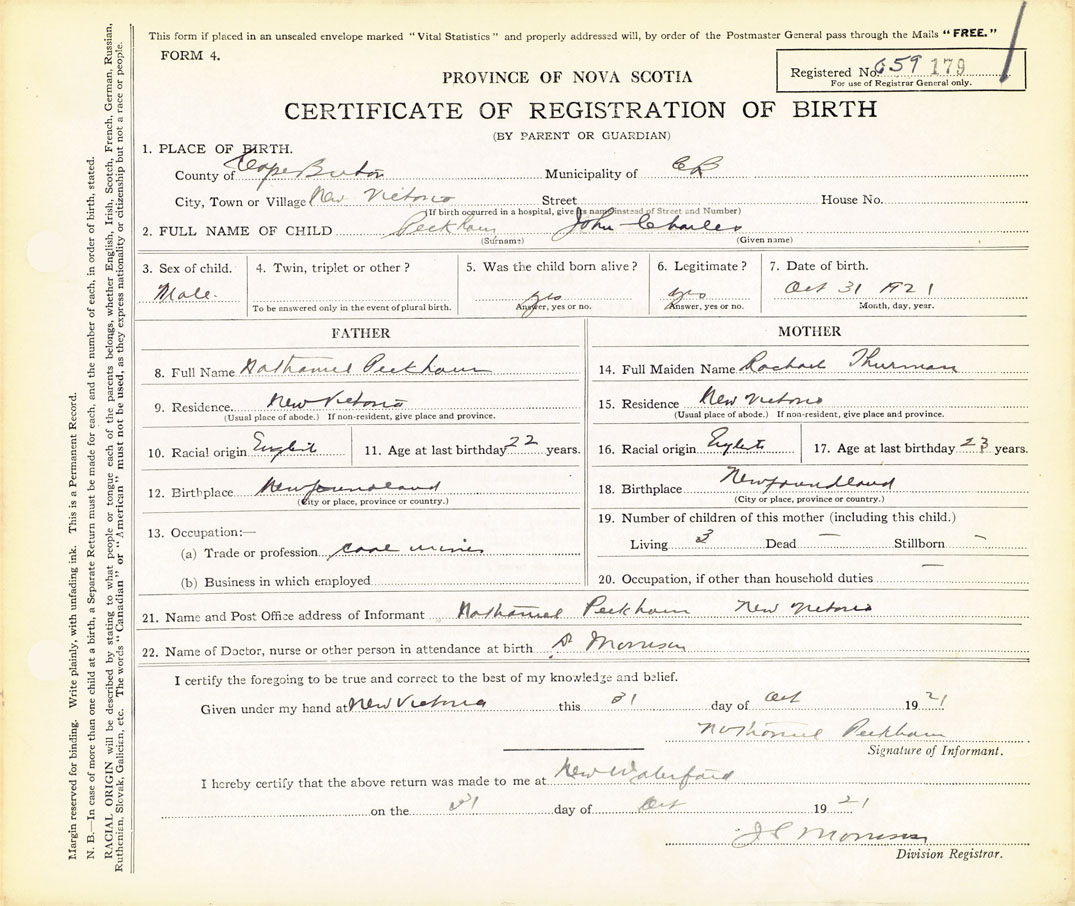 This form if placed in an unsealed envelope marked "Vital Statistics" and properly addressed will, by order of the Postmaster General pass through the Mails "FREE."
FORM 4.
Registered No. 659 179
For use of Registrar General only.
PROVINCE OF NOVA SCOTIA
CERTIFICATE OF REGISTRATION OF BIRTH
(BY PARENT OR GUARDIAN)
1. PLACE OF BIRTH.
County of Cape Breton Municipality of C B
City, Town or Village New Victoria Street House No.
(If birth occurred in a hospital, give its name instead of Street and Number)
2. FULL NAME OF CHILD Peckham John Charles
(Surname) (Given name)
3. Sex of child. 4. Twin, triplet or other? 5. Was the child born alive? 6. Legitimate? 7. Date of birth.
Male. yes yes Oct 31 1921
To be answered only in the event of plural birth. Answer, yes or no. Answer, yes or no. Month, day, year.
FATHER
8. Full Name Nathaniel Peckham
9. Residence. New Victoria
(Usual place of abode.) If non-resident, give place and province.
10. Racial origin English 11. Age at last birthday 22 years.
12. Birthplace Newfoundland
(City or place, province or country.)
13. Occupation:—
(a) Trade or profession coal miner
(b) Business in which employed
MOTHER
14. Full Maiden Name Rachael Thurman
15. Residence New Victoria
(Usual place of abode.) If non-resident, give place and province.
16. Racial origin English 17. Age at last birthday 23 years.
18. Birthplace Newfoundland
(City or place, province or country.)
19. Number of children of this mother (including this child.)
Living 3 Dead — Stillborn -
20. Occupation, if other than household duties —
21. Name and Post Office address of Informant Nathaniel Peckham New Victoria
22. Name of Doctor, nurse or other person in attendance at birth Morrison
I certify the foregoing to be true and correct to the best of my knowledge and belief.
Given under my hand at New Victoria this 31 day of Oct 1921
Nathaniel Peckham
Signature of Informant.
I hereby certify that the above return was made to me at New Waterford
on the 31 day of Oct 1921
Morrison
Division Registrar.
Margin reserved for binding. Write plainly, with unfading ink. This is a Permanent Record.
N. B.—In case of more than one child at a birth, a Separate Return must be made for each, and the number of each, in order of birth, stated.
RACIAL ORIGIN will be described by stating to what people or tongue each of the parents belongs, whether English, Irish, Scotch, French, German, Russian,
Ruthenian, Slovak, Galician, etc. The words "Canadian" or "American" must not be used, as they express nationality or citizenship but not a race or people.